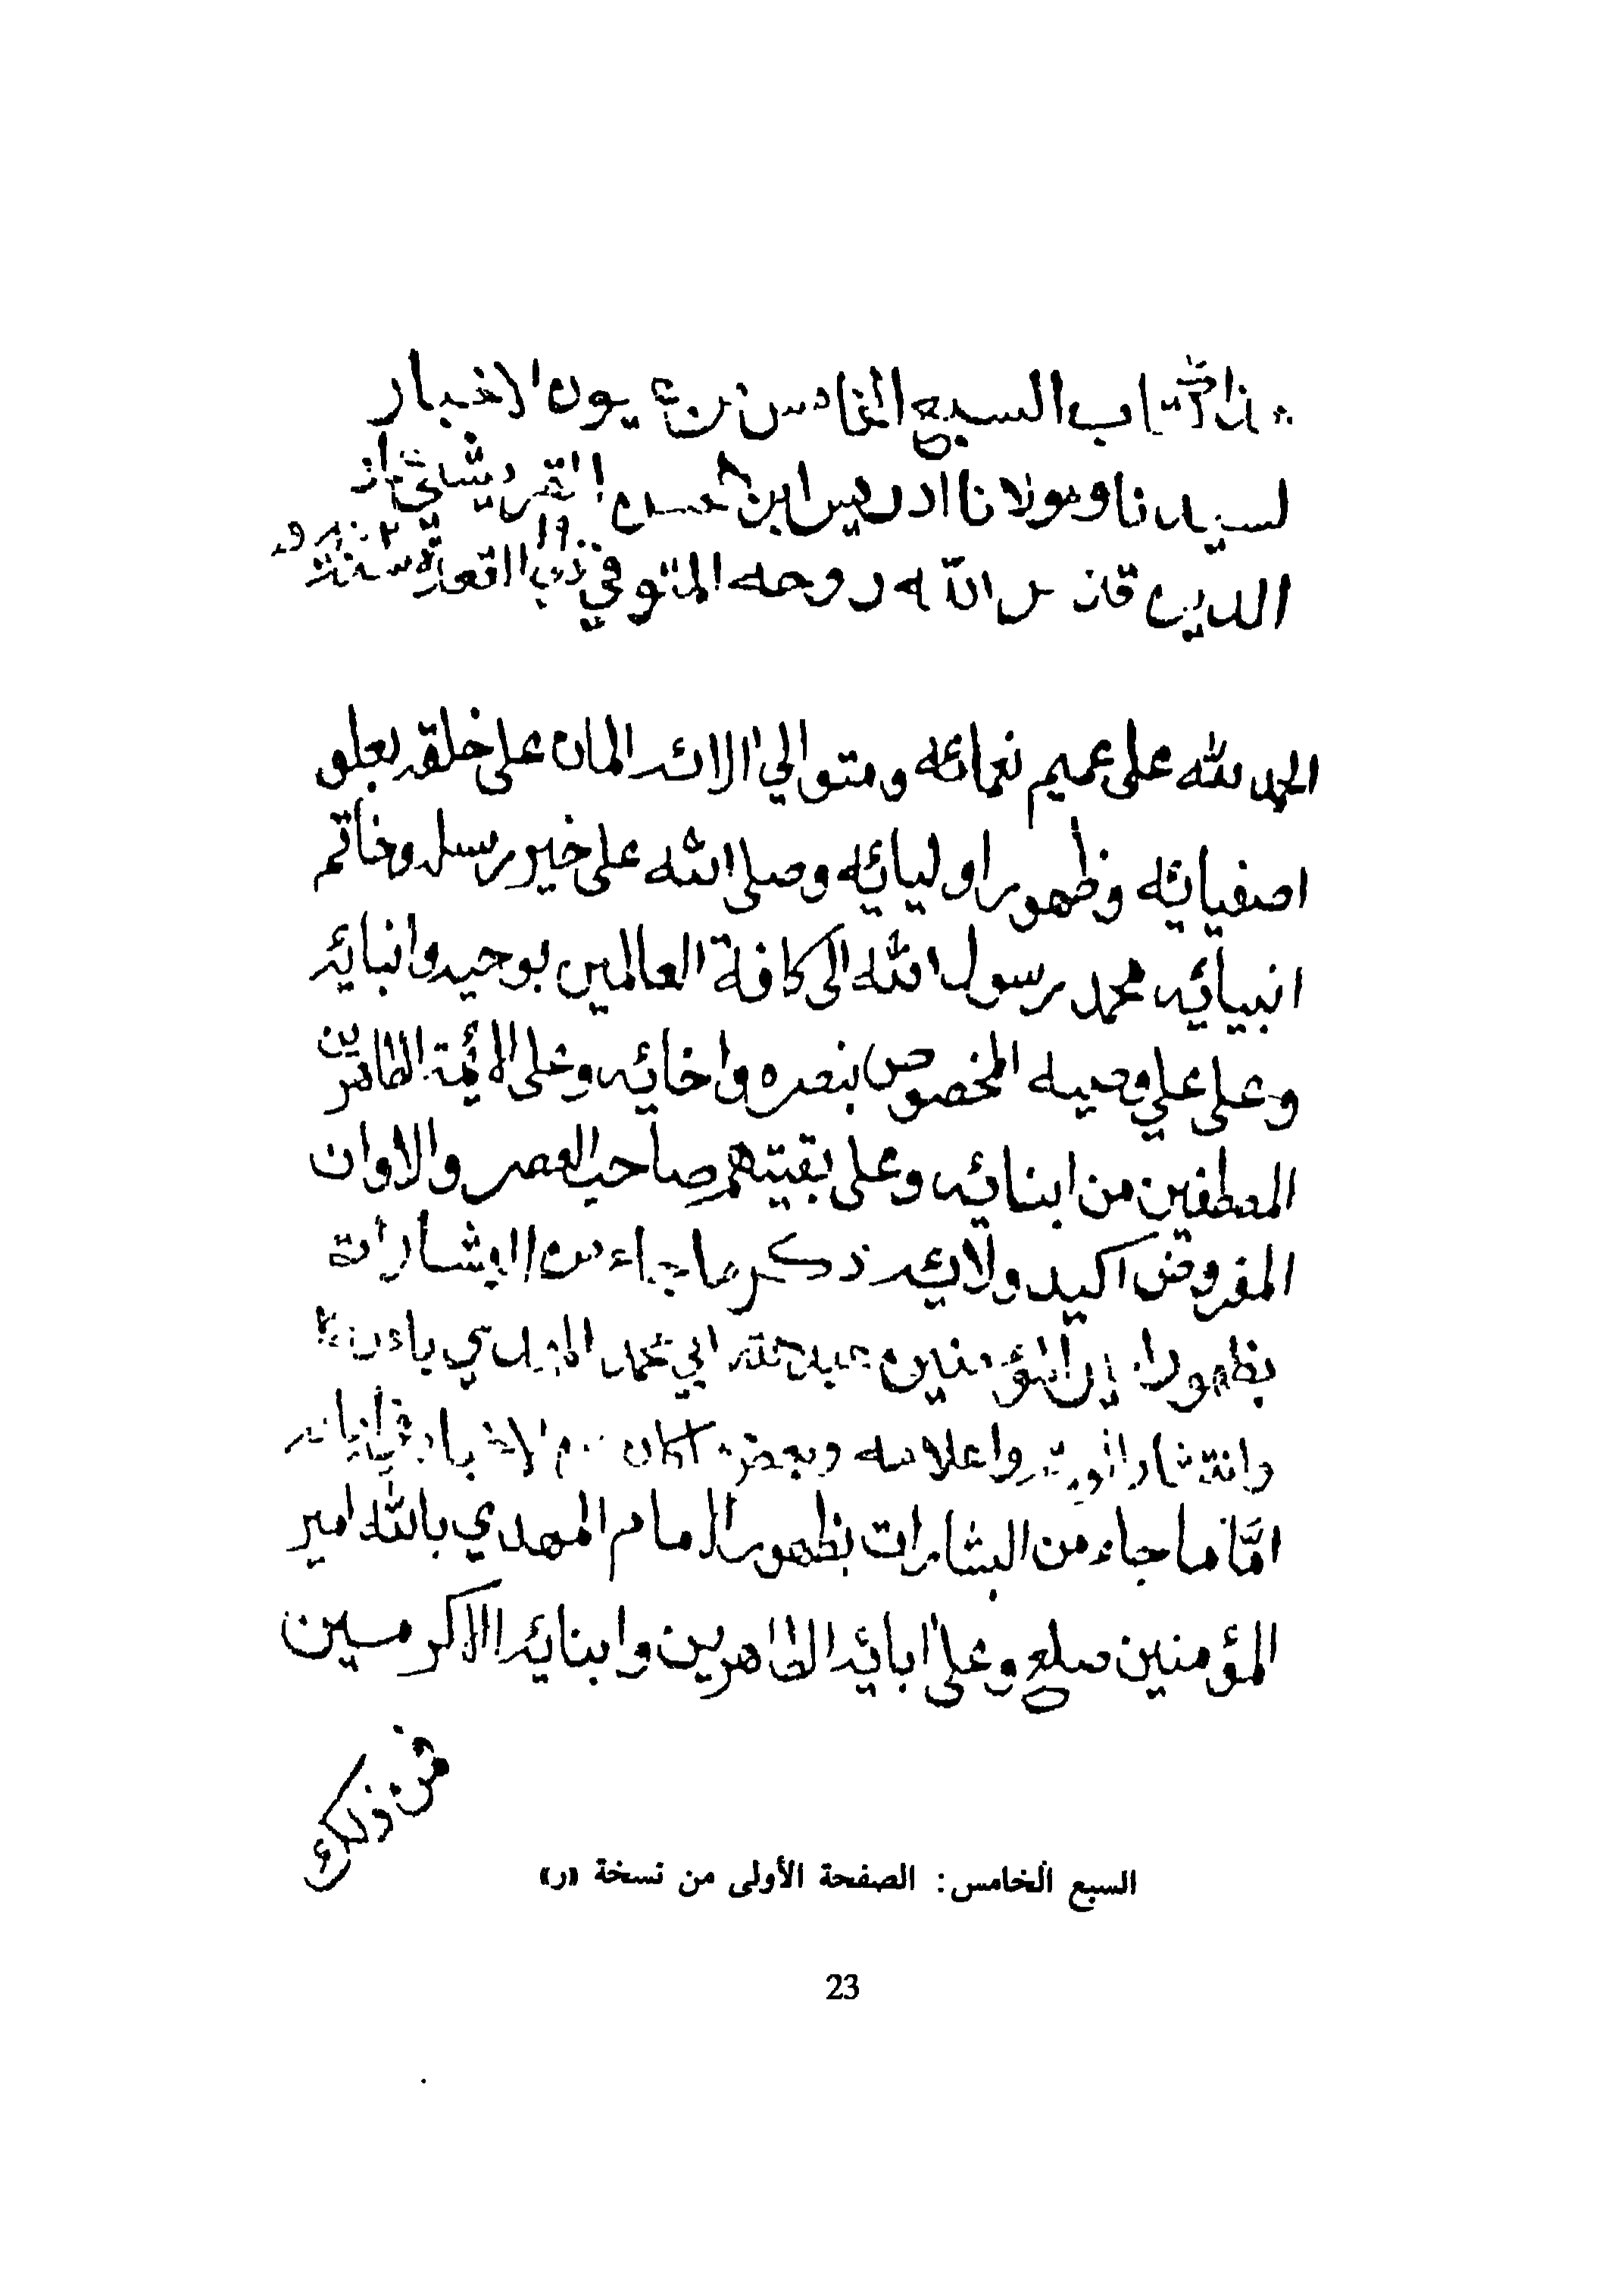 هذا الكتاب السبع الخامس من عيون الاخبار
لسيدنا ومولانا ادريس ابن الحسن القريشي
الدين قدس الله روحه المتوفي ذي القعدة سنة
الحمد لله على عميم نعمائه ومتوالي الائه المان على خلقه بعلو
اصفيائه وظهور اوليائه وصلى الله على خير رسله وخاتم
انبيائه محمد رسول الله الى كافة العالمين بوحيه وانبائه
وعلى علي وصيه المخصوص بنصره واخائه وعلى الائمة الطاهرين
المصطفين من ابنائه وعلى بقيتهم صاحب العصر والاوان
المفروض اكيد ولائه ذكر ما جاء من البشارات
بظهور امير المؤمنين عبد الله ابي محمد المهدي بالله
وانتشار واعلامه وبعض ما كان من الاخبار في
امّا ما جاء من البشارات بظهور الامام المهدي بالله امير
المؤمنين صلع وعلى ابائه الطاهرين وابنائه الاكرمين
فمن ذلك
السبع الخامس: الصفحة الأولى من نسخة «ر»
23